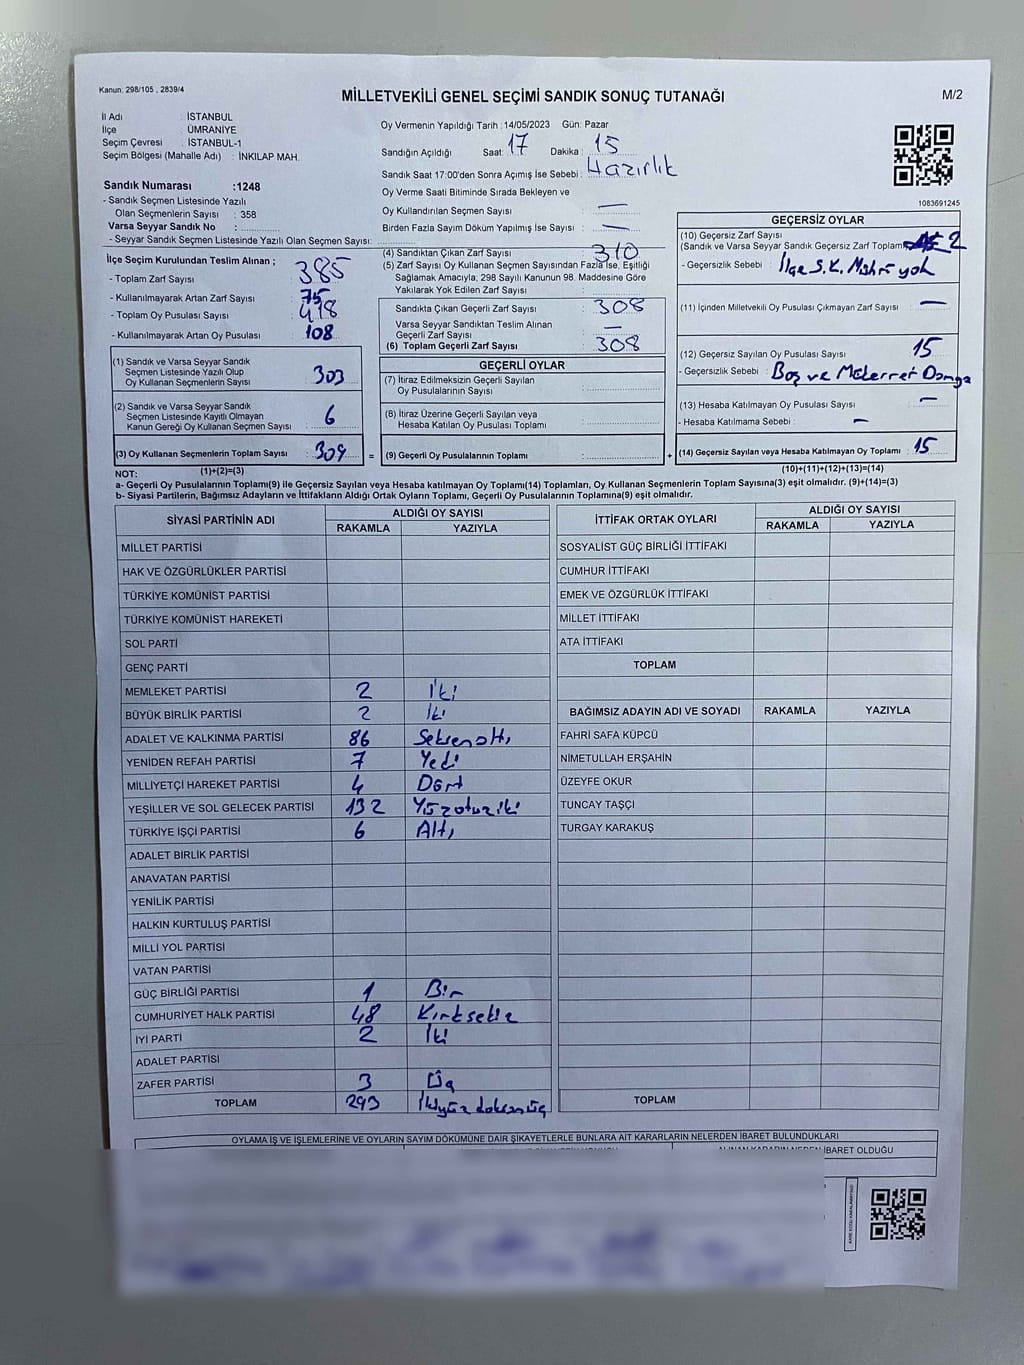 Kanun: 298/105 , 2839/4
MİLLETVEKİLİ GENEL SEÇİMİ SANDIK SONUÇ TUTANAĞI
M/2
İl Adı : İSTANBUL
İlçe : ÜMRANİYE
Seçim Çevresi : İSTANBUL-1
Seçim Bölgesi (Mahalle Adı) : İNKILAP MAH.
Sandık Numarası :1248
- Sandık Seçmen Listesinde Yazılı
Olan Seçmenlerin Sayısı : 358
Varsa Seyyar Sandık No :
- Seyyar Sandık Seçmen Listesinde Yazılı Olan Seçmen Sayısı:
Oy Vermenin Yapıldığı Tarih : 14/05/2023 Gün: Pazar
Sandığın Açıldığı Saat: 17 Dakika : 15
Sandık Saat 17:00'den Sonra Açımış İse Sebebi : Hazırlık
Oy Verme Saati Bitiminde Sırada Bekleyen ve
Oy Kullandırılan Seçmen Sayısı : —
Birden Fazla Sayım Döküm Yapılmış İse Sayısı : —
1083691245
İlçe Seçim Kurulundan Teslim Alınan ;
- Toplam Zarf Sayısı : 385
- Kullanılmayarak Artan Zarf Sayısı : 75
- Toplam Oy Pusulası Sayısı : 418
- Kullanılmayarak Artan Oy Pusulası : 108
(1) Sandık ve Varsa Seyyar Sandık
Seçmen Listesinde Yazılı Olup
Oy Kullanan Seçmenlerin Sayısı : 303
(2) Sandık ve Varsa Seyyar Sandık
Seçmen Listesinde Kayıtlı Olmayan
Kanun Gereği Oy Kullanan Seçmen Sayısı : 6
(3) Oy Kullanan Seçmenlerin Toplam Sayısı : 309 =
(4) Sandıktan Çıkan Zarf Sayısı : 310
(5) Zarf Sayısı Oy Kullanan Seçmen Sayısından Fazla İse, Eşitliği
Sağlamak Amacıyla, 298 Sayılı Kanunun 98. Maddesine Göre
Yakılarak Yok Edilen Zarf Sayısı :
Sandıkta Çıkan Geçerli Zarf Sayısı : 308
Varsa Seyyar Sandıktan Teslim Alınan
Geçerli Zarf Sayısı : —
(6) Toplam Geçerli Zarf Sayısı : 308
GEÇERLİ OYLAR
(7) İtiraz Edilmeksizin Geçerli Sayılan
Oy Pusulalarının Sayısı :
(8) İtiraz Üzerine Geçerli Sayılan veya
Hesaba Katılan Oy Pusulası Toplamı :
(9) Geçerli Oy Pusulalarının Toplamı : +
GEÇERSİZ OYLAR
(10) Geçersiz Zarf Sayısı
(Sandık ve Varsa Seyyar Sandık Geçersiz Zarf Toplamı) 2
- Geçersizlik Sebebi : İlçe S.K. Mührü yok
(11) İçinden Milletvekili Oy Pusulası Çıkmayan Zarf Sayısı : —
(12) Geçersiz Sayılan Oy Pusulası Sayısı : 15
- Geçersizlik Sebebi : Boş ve Mükerrer Damga
(13) Hesaba Katılmayan Oy Pusulası Sayısı : —
- Hesaba Katılmama Sebebi : —
(14) Geçersiz Sayılan veya Hesaba Katılmayan Oy Toplamı : 15
NOT: (1)+(2)=(3) (10)+(11)+(12)+(13)=(14)
a- Geçerli Oy Pusulalarının Toplamı(9) ile Geçersiz Sayılan veya Hesaba katılmayan Oy Toplamı(14) Toplamları, Oy Kullanan Seçmenlerin Toplam Sayısına(3) eşit olmalıdır. (9)+(14)=(3)
b- Siyasi Partilerin, Bağımsız Adayların ve İttifakların Aldığı Ortak Oyların Toplamı, Geçerli Oy Pusulalarının Toplamına(9) eşit olmalıdır.
SİYASİ PARTİNİN ADI ALDIĞI OY SAYISI
RAKAMLA YAZIYLA
MİLLET PARTİSİ
HAK VE ÖZGÜRLÜKLER PARTİSİ
TÜRKİYE KOMÜNİST PARTİSİ
TÜRKİYE KOMÜNİST HAREKETİ
SOL PARTİ
GENÇ PARTİ
MEMLEKET PARTİSİ 2 İki
BÜYÜK BİRLİK PARTİSİ 2 İki
ADALET VE KALKINMA PARTİSİ 86 Seksenaltı
YENİDEN REFAH PARTİSİ 7 Yedi
MİLLİYETÇİ HAREKET PARTİSİ 4 Dört
YEŞİLLER VE SOL GELECEK PARTİSİ 132 Yüzotuziki
TÜRKİYE İŞÇİ PARTİSİ 6 Altı
ADALET BİRLİK PARTİSİ
ANAVATAN PARTİSİ
YENİLİK PARTİSİ
HALKIN KURTULUŞ PARTİSİ
MİLLİ YOL PARTİSİ
VATAN PARTİSİ
GÜÇ BİRLİĞİ PARTİSİ 1 Bir
CUMHURİYET HALK PARTİSİ 48 Kırksekiz
İYİ PARTİ 2 İki
ADALET PARTİSİ
ZAFER PARTİSİ 3 Üç
TOPLAM 293 İkiyüz doksanüç
İTTİFAK ORTAK OYLARI ALDIĞI OY SAYISI
RAKAMLA YAZIYLA
SOSYALİST GÜÇ BİRLİĞİ İTTİFAKI
CUMHUR İTTİFAKI
EMEK VE ÖZGÜRLÜK İTTİFAKI
MİLLET İTTİFAKI
ATA İTTİFAKI
TOPLAM
BAĞIMSIZ ADAYIN ADI VE SOYADI RAKAMLA YAZIYLA
FAHRİ SAFA KÜPCÜ
NİMETULLAH ERŞAHİN
ÜZEYFE OKUR
TUNCAY TAŞÇI
TURGAY KARAKUŞ
TOPLAM
OYLAMA İŞ VE İŞLEMLERİNE VE OYLARIN SAYIM DÖKÜMÜNE DAİR ŞİKAYETLERLE BUNLARA AİT KARARLARIN NELERDEN İBARET BULUNDUKLARI
ALINAN KARARIN NEDEN İBARET OLDUĞU